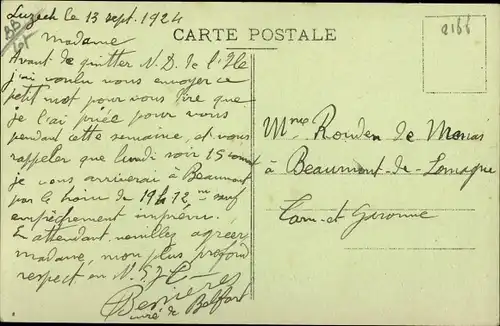 Luzech le 13 sept. 1924
CARTE POSTALE
2166
Madame
Avant de quitter N.D. de l'Ile
j'ai voulu vous envoyer ce
petit mot pour vous dire que
je l'ai priée pour vous
pendant cette semaine, et vous
rappeler que lundi soir 15 court
je vous arriverai à Beaumont
par le train de 19h 12m sauf
empêchement imprévu.
En attendant veuillez agréer
madame, mon plus profond
respect en N.S.J.C.
Bessieres
curé de Belfort
Mme Rouden de
à Beaumont-de-Lomagne
Tarn-et-Garonne